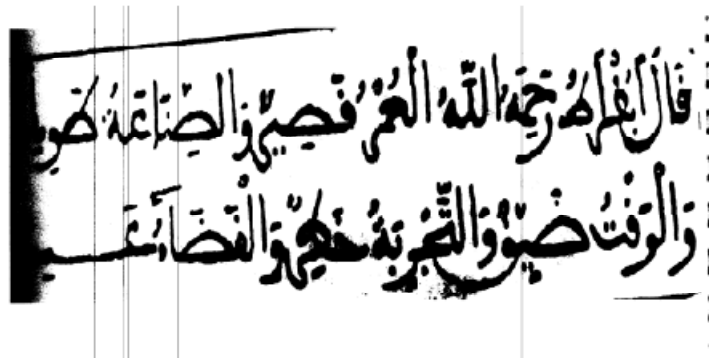 قَالَ أَبُقْرَاطُ رَحِمَهُ اللَّهُ الْعُمُرُ قَصِيرٌ وَالصِّنَاعَةُ طَوِي
وَالْوَقْتُ ضَيِّقٌ وَالتَّجْرِبَةُ وَالْقَضَاءُ عَسِي